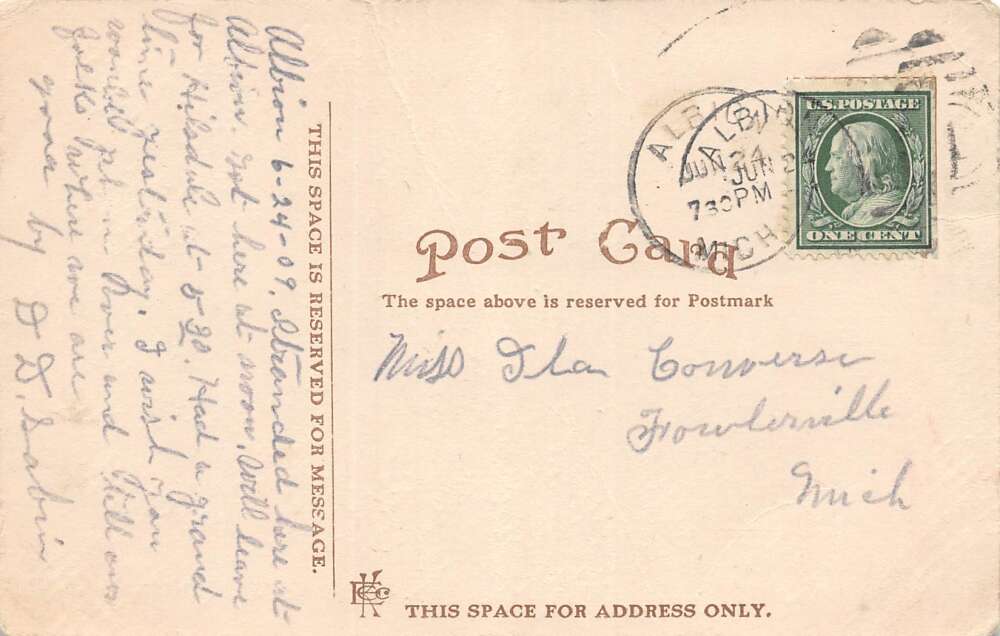 Albion 6-24-09. Stranded here at
Albion. Got here at noon. Will leave
for Hilsdale at 5 30. Had a grand
time yesterday. I wish you
would and tell our
folks where we are
yours by D D. Sabin
THIS SPACE IS RESERVED FOR MESSAGE.
ALBION
ALBION
JUN 24
JUN 2
730PM
MICH
U.S. POSTAGE
ONE CENT
Post Card
The space above is reserved for Postmark
Miss Ila Converse
Fowlerville
Mich
THIS SPACE FOR ADDRESS ONLY.